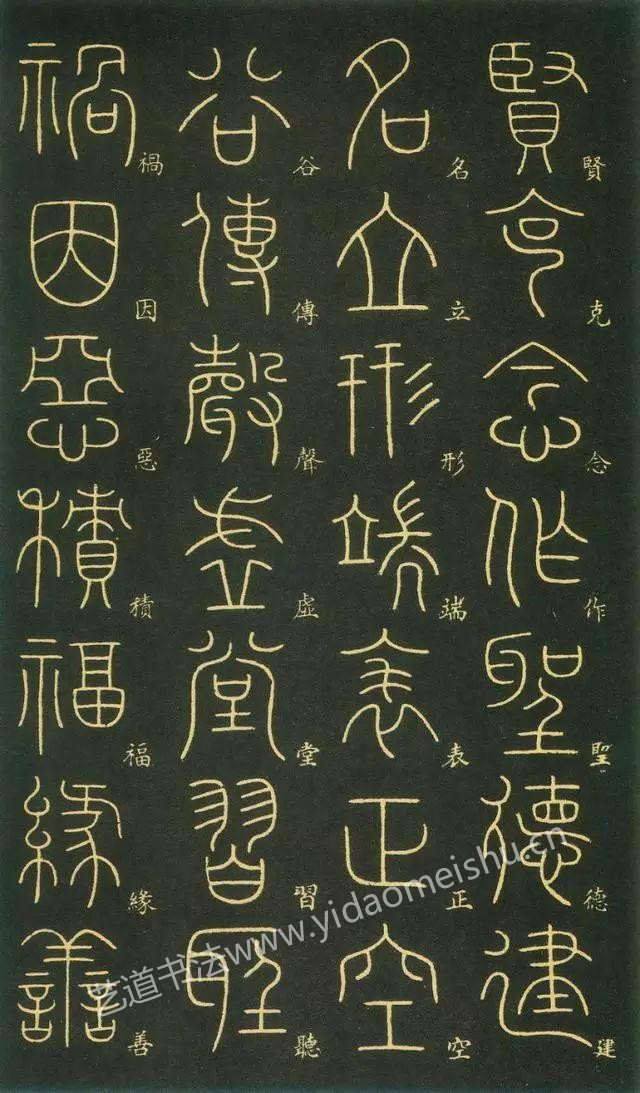 賢克念作聖德建
名立形端表正空
谷傳聲虛堂習聽
禍因惡積福緣善
艺道书法www.yidaomeishu.cn